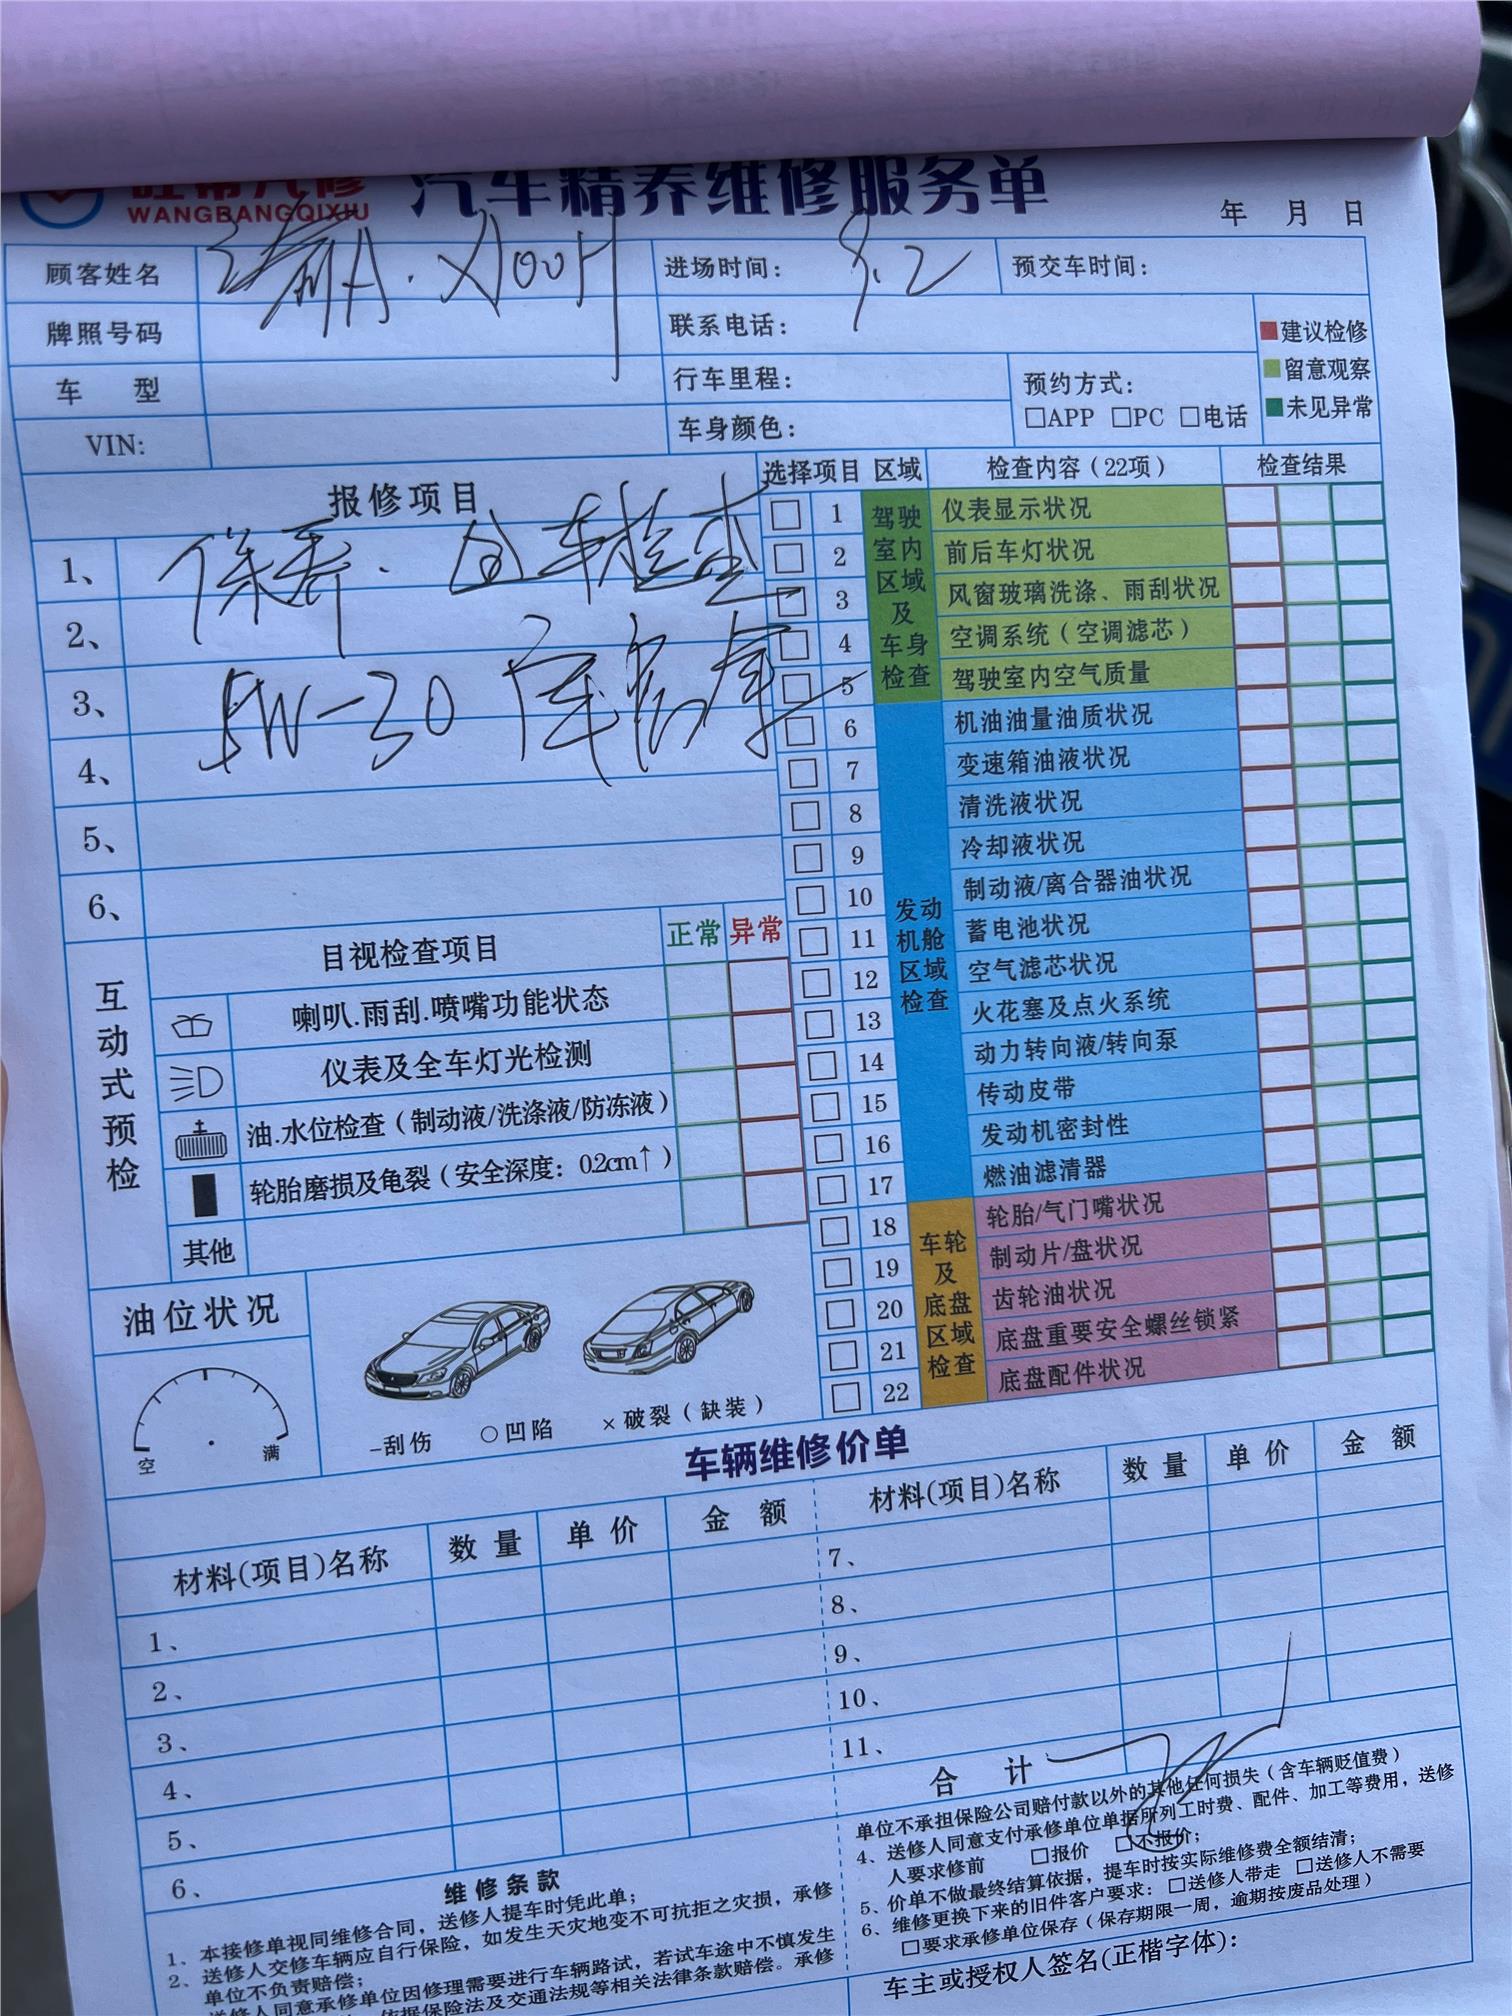 WANGBANGQIXIU
汽车精养维修服务单
年 月 日
顾客姓名
进场时间: 9.2
预交车时间:
牌照号码
联系电话:
建议检修
留意观察
未见异常
车 型
行车里程:
预约方式:
□APP □PC □电话
VIN:
车身颜色:
报修项目
1、保养. 全车检查
2、
3、5W-30
4、
5、
6、
选择项目 区域 检查内容(22项) 检查结果
驾驶室内区域及车身检查
1 仪表显示状况
2 前后车灯状况
3 风窗玻璃洗涤、雨刮状况
4 空调系统(空调滤芯)
5 驾驶室内空气质量
发动机舱区域检查
6 机油油量油质状况
7 变速箱油液状况
8 清洗液状况
9 冷却液状况
10 制动液/离合器油状况
11 蓄电池状况
12 空气滤芯状况
13 火花塞及点火系统
14 动力转向液/转向泵
15 传动皮带
16 发动机密封性
17 燃油滤清器
车轮及底盘区域检查
18 轮胎/气门嘴状况
19 制动片/盘状况
20 齿轮油状况
21 底盘重要安全螺丝锁紧
22 底盘配件状况
互动式预检
目视检查项目 正常 异常
喇叭.雨刮.喷嘴功能状态
仪表及全车灯光检测
油.水位检查(制动液/洗涤液/防冻液)
轮胎磨损及龟裂(安全深度: 0.2cm↑)
其他
油位状况
空 满
-刮伤 ○凹陷 ×破裂(缺装)
车辆维修价单
材料(项目)名称 数量 单价 金额
1、
2、
3、
4、
5、
6、
材料(项目)名称 数量 单价 金额
7、
8、
9、
10、
11、
合 计
维修条款
1、本接修单视同维修合同，送修人提车时凭此单；
2、送修人交修车辆应自行保险，如发生天灾地变不可抗拒之灾损，承修
单位不负责赔偿；
送修人同意承修单位因修理需要进行车辆路试，若试车途中不慎发生
依据保险法及交通法规等相关法律条款赔偿。承修
单位不承担保险公司赔付款以外的其他任何损失(含车辆贬值费)
4、送修人同意支付承修单位单据所列工时费、配件、加工等费用，送修
人要求修前 □报价 □不报价；
5、价单不做最终结算依据，提车时按实际维修费全额结清；
6、维修更换下来的旧件客户要求：□送修人带走 □送修人不需要
□要求承修单位保存(保存期限一周，逾期按废品处理)
车主或授权人签名(正楷字体):